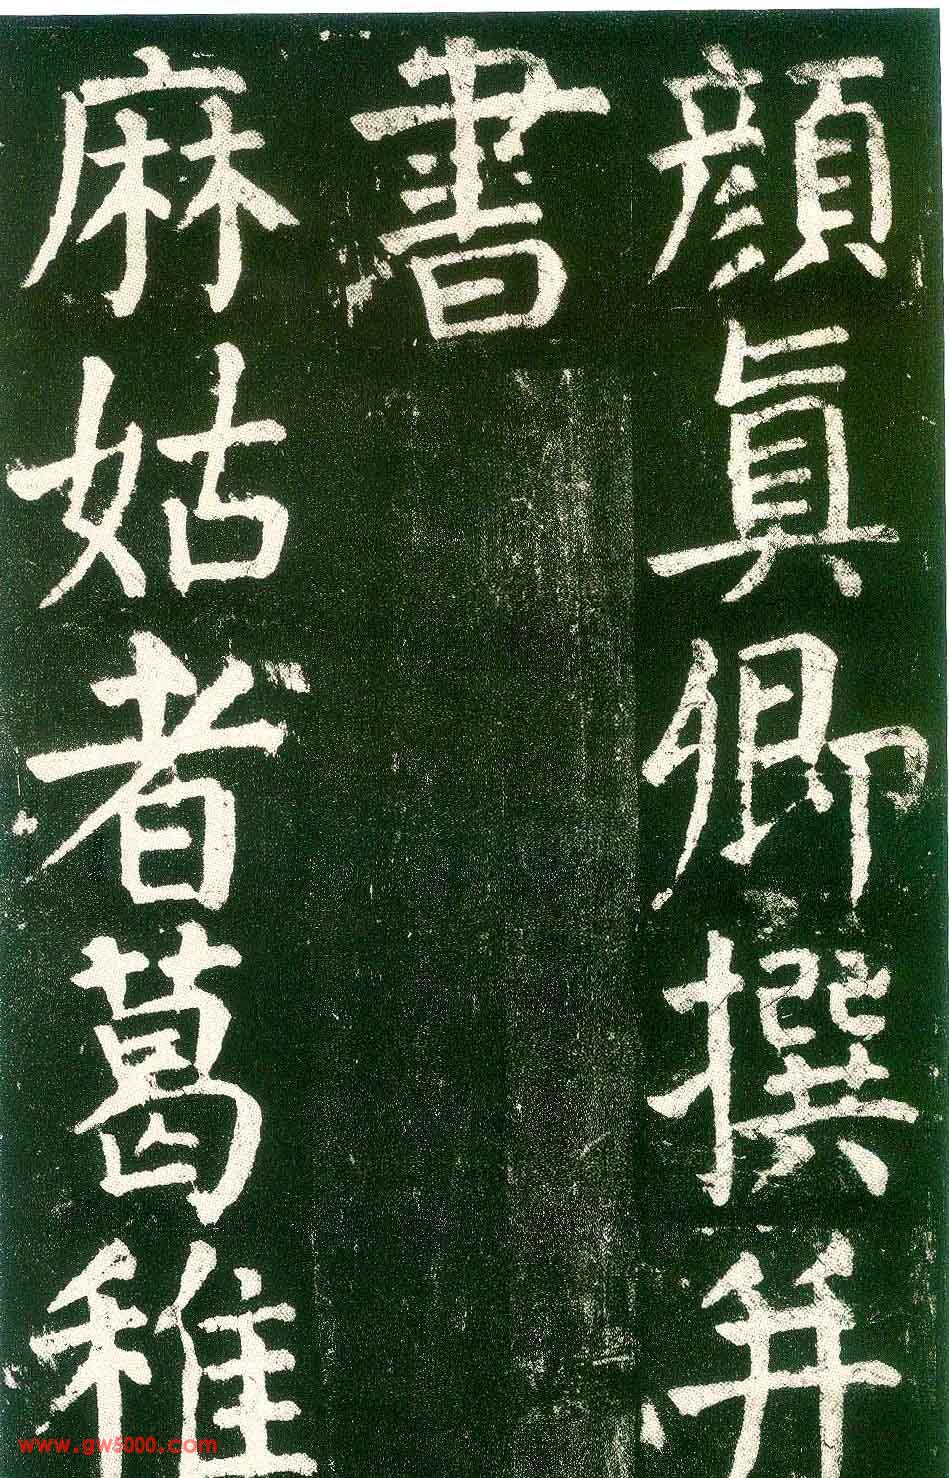 顏真卿撰并
書
麻姑者葛稚
www.gw5000.com